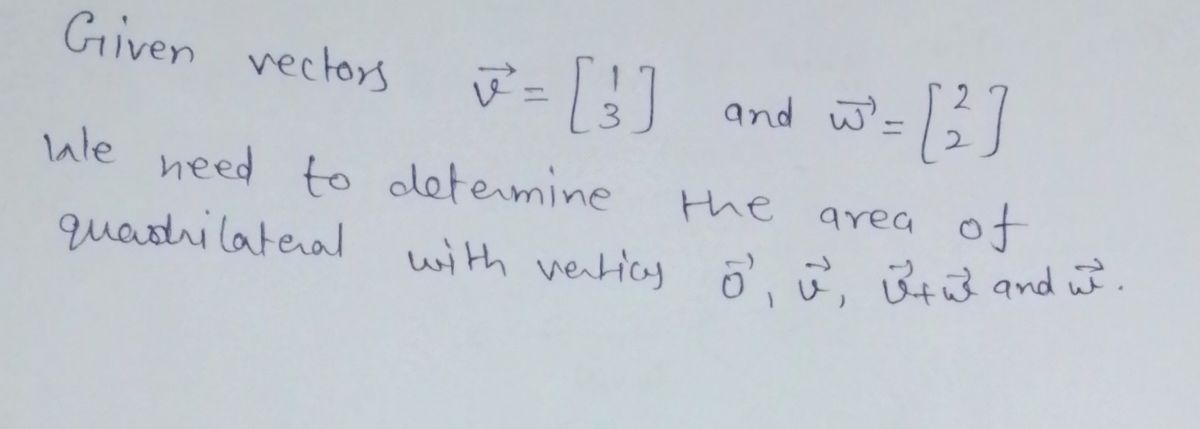 Given vectors v⃗ = [1 3] and w⃗ = [2 2]
We need to determine the area of
quadrilateral with vertices 0⃗, v⃗, v⃗+w⃗ and w⃗.